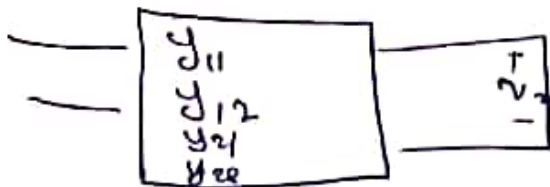 y11
y12
y21
y22
+
v2
-